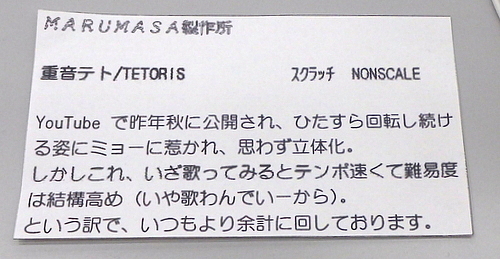 MARUMASA製作所
重音テト/TETORIS　スクラッチ　NONSCALE
YouTube で昨年秋に公開され、ひたすら回転し続け
る姿にミョーに惹かれ、思わず立体化。
しかしこれ、いざ歌ってみるとテンポ速くて難易度
は結構高め（いや歌わんでいーから）。
という訳で、いつもより余計に回しております。